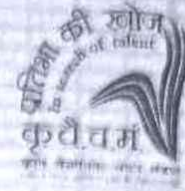 प्रतिभा की खोज
In search of talent
कृ.वै.च.मं.